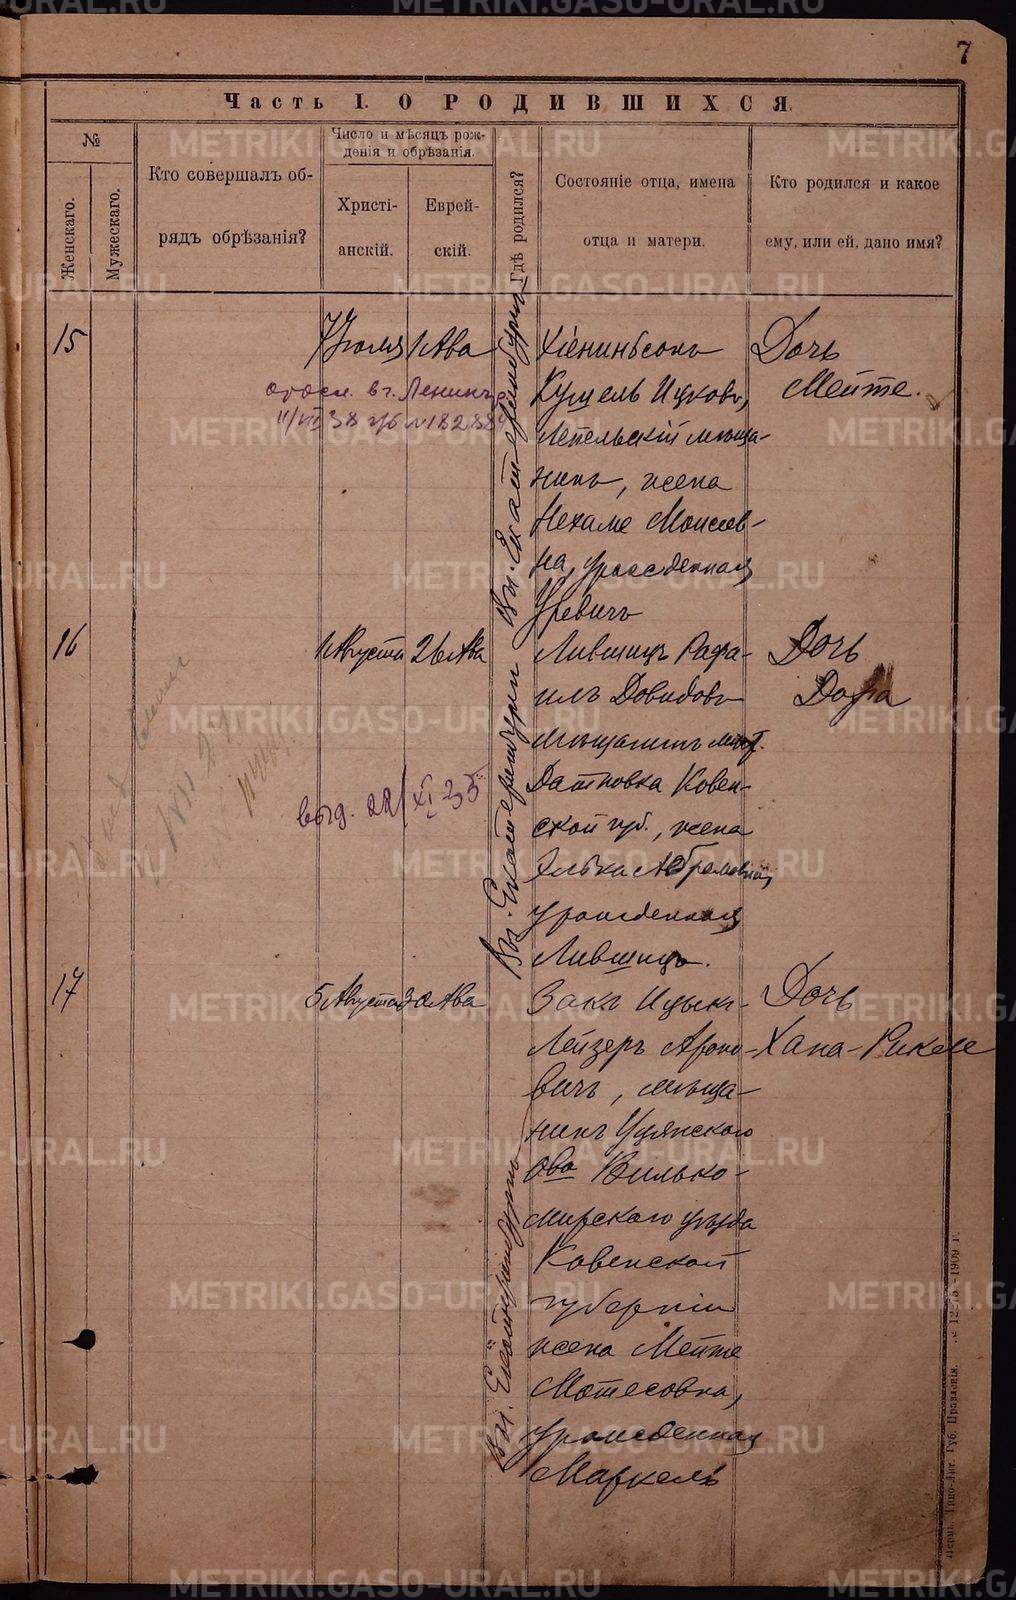 7
Часть I. О РОДИВШИХСЯ.
№
Женскаго.
Мужескаго.
Кто совершалъ об-
рядъ обрѣзанія?
Число и мѣсяцъ рож-
денія и обрѣзанія.
Христі-
анскій.
Еврей-
скій.
Гдѣ родился?
Состояніе отца, имена
отца и матери.
Кто родился и какое
ему, или ей, дано имя?
15
7 Іюля
1 Ава
Въ г. Екатеринбургѣ
Хіениньсонъ
Кушель Ицковъ,
Лепельскій мѣща-
нинъ, жена
Нехаме Моисеев-
на, урожденная
Гуревичъ
Дочь
Мейте.
11/VII 38 г. № 182884
16
1 Августа
26 Ава
Въ г. Екатеринбургѣ
Лившицъ Рафа-
илъ Довидовъ
мѣщанинъ мѣст.
Датновка Ковен-
ской губ., жена
Элька Абрамовна,
урожденная
Лившицъ.
Дочь
Дора
выд. 22/XI 35
17
5 Августа
30 Ава
Въ г. Екатеринбургѣ
Закъ Ицыкъ-
Лейзеръ Ароно-
вичъ, мѣща-
нинъ Уцянского
о-ва Вилько-
мирского уѣзда
Ковенской
губерніи
жена Мейте
Мотесовна,
урожденная
Маркель
Дочь
Хана-Рикле
METRIKI.GASO-URAL.RU